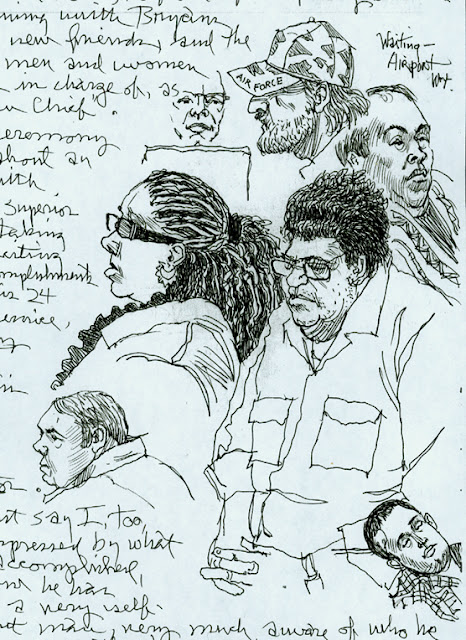 with Bryans
new friends, and the
men and women
in charge of, as
Chief".
eremony
about an
with
Superior
taking
arting
complishments
24
service,
in
or.
st say I, too,
mpressed by what
accomplished,
he has
a very self-
man, very much aware of who he
AIR FORCE
Waiting –
Airport